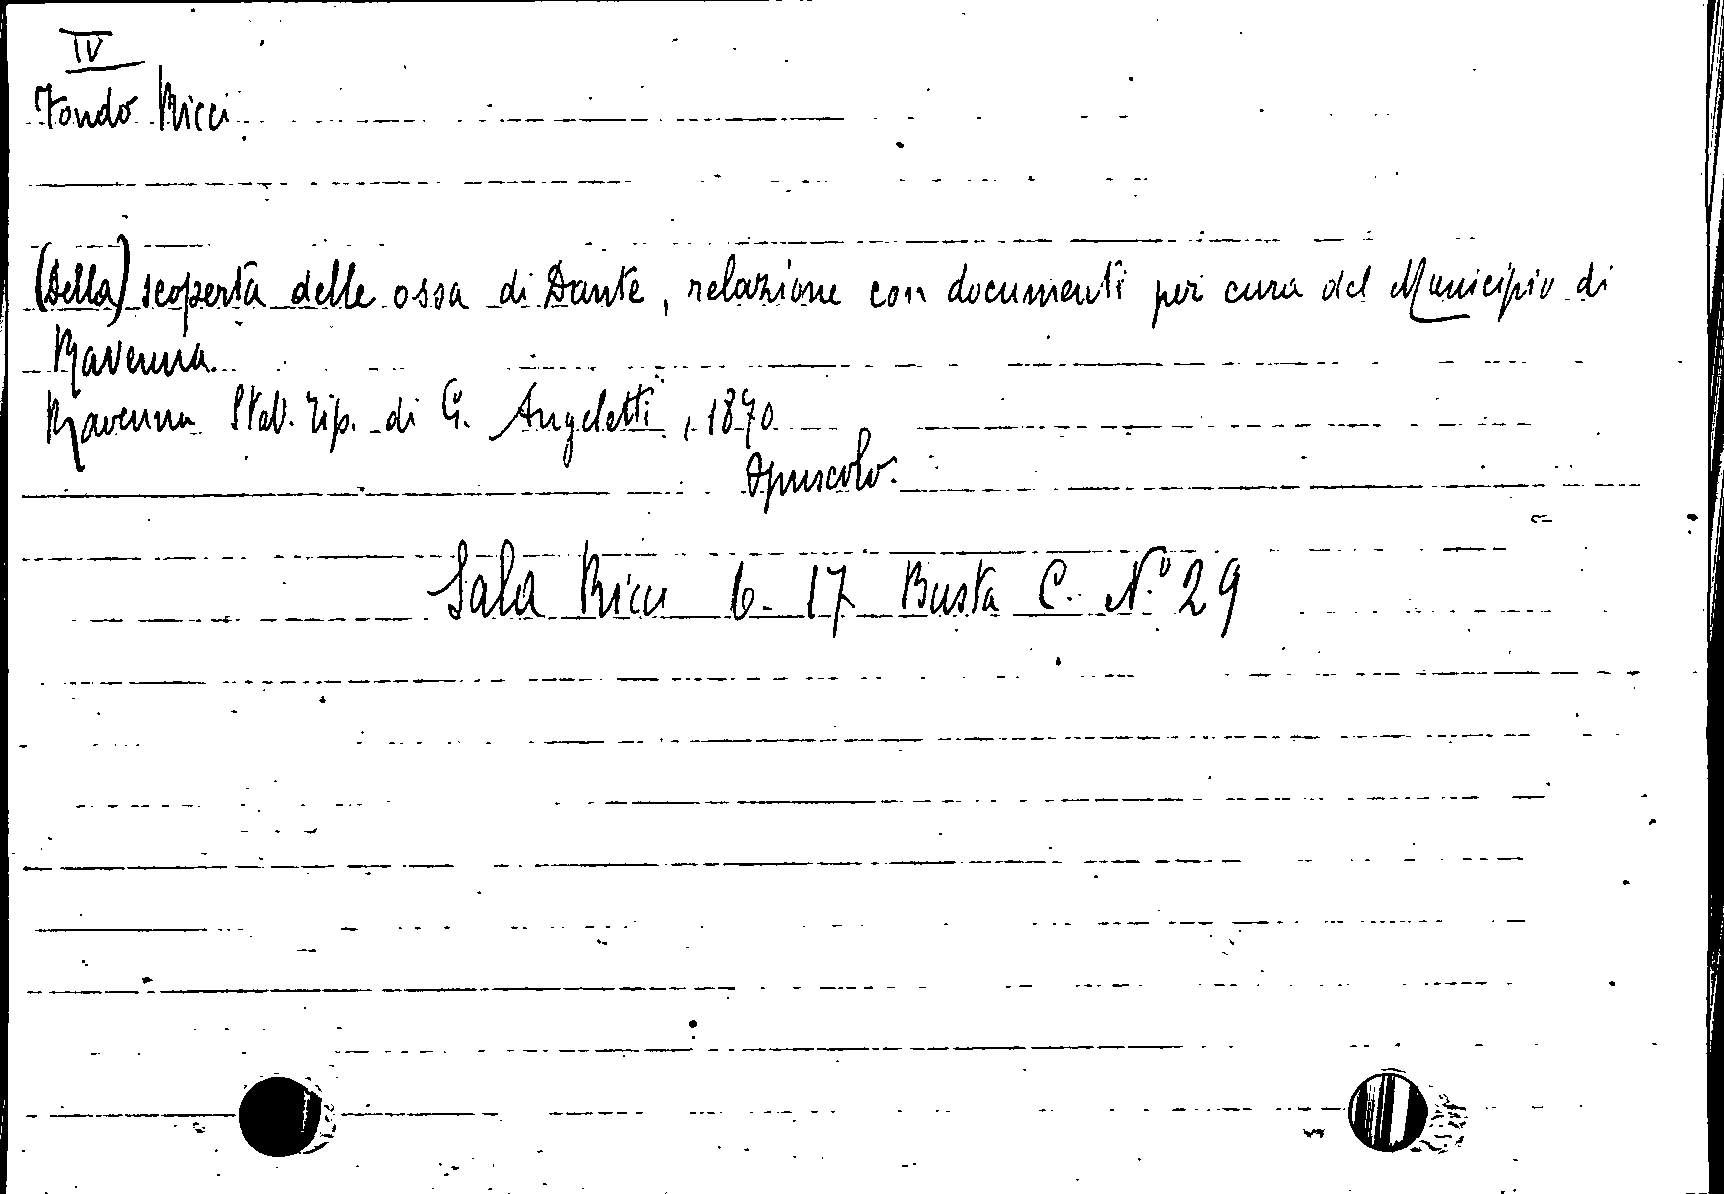 IV
Fondo Ricci
(Della) scoperta delle ossa di Dante, relazione con documenti per cura del Municipio di
Ravenna.
Ravenna Stab. Tip. di G. Angeletti, 1870
Opuscolo.
Sala Ricci 6. 17 Busta C. N.º 29